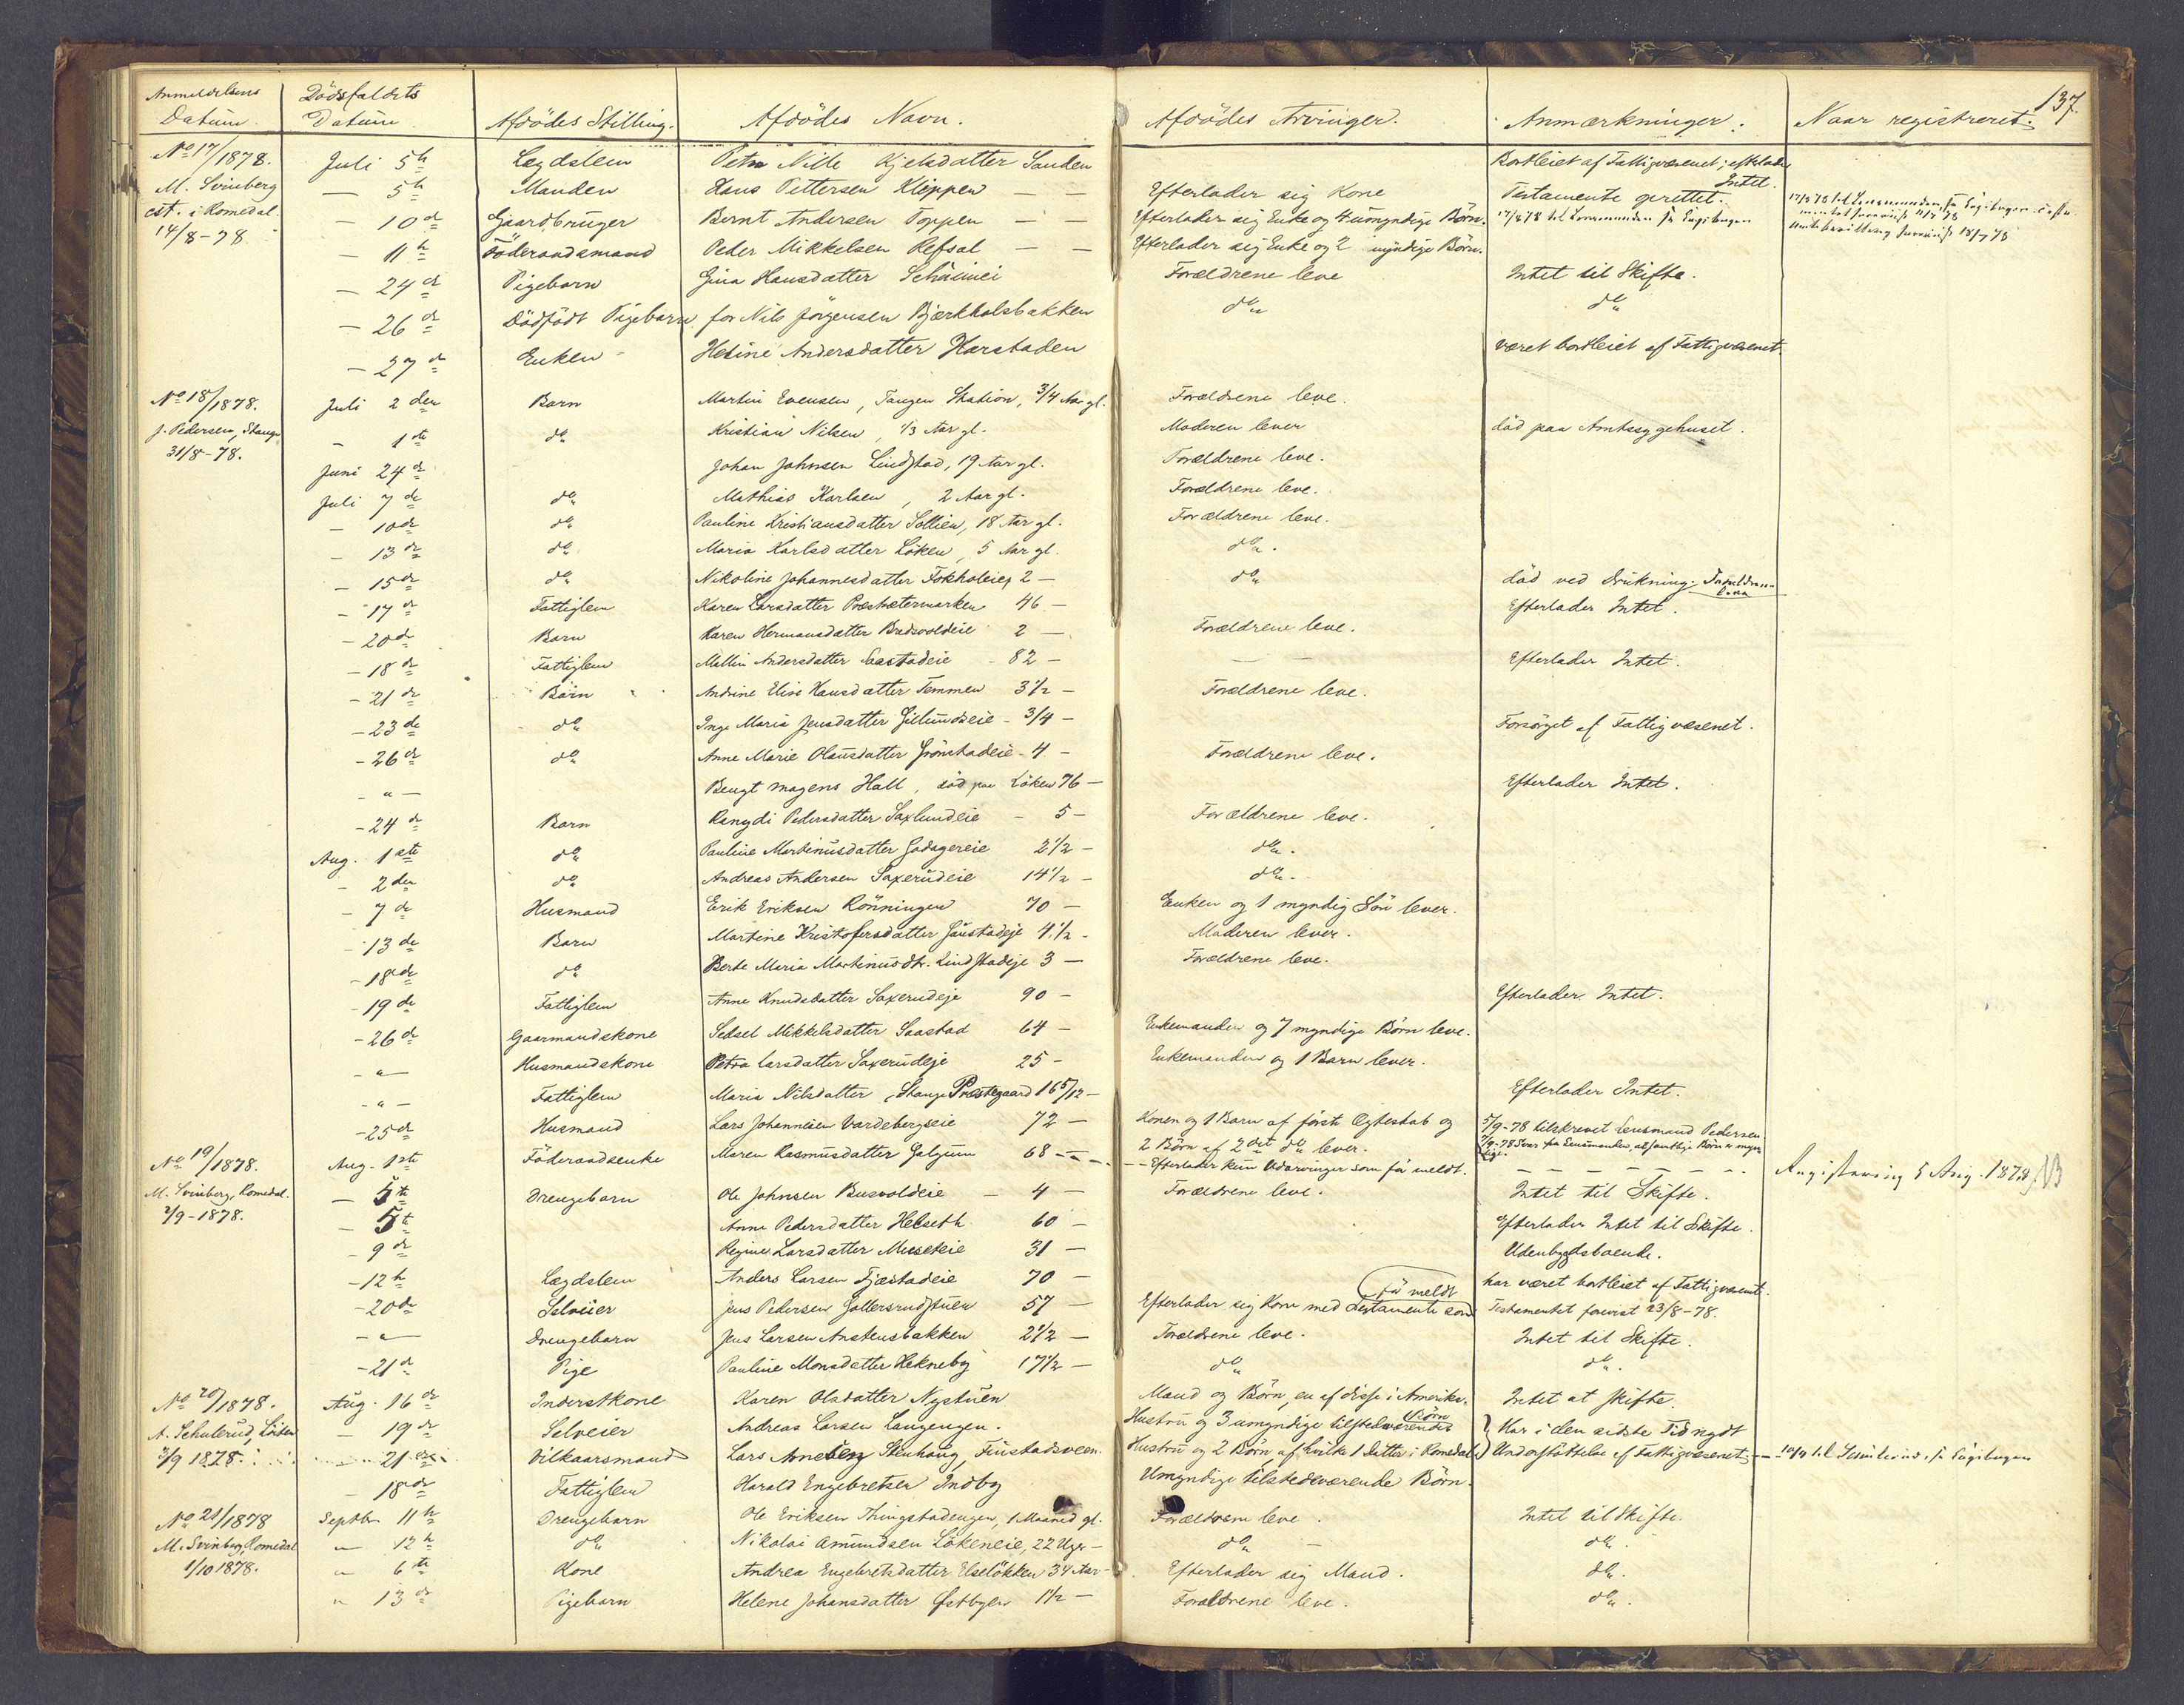 137.
Anmeldelsens Datum. Dödsfaldets Datum. Afdödes Stilling. Afdödes Navn. Afdödes Arvinger. Anmærkninger. Naar registreret.
No 17/1878. Juli 5te Lægdslem Kjelsdatter Sanden Bortleiet af Fattigvæsenet; efterlader Intet.
M. Svinberg — 5te Manden Hans Pettersen Kleppen — — Efterlader sig Kone Testamente oprettet.
cst. i Romedal. — 10de Gaardbruger Bernt Andersen Toppen — — Efterlader sig Enke og 4 umyndige Börn.
14/8-78. — 11te Föderaadsmand Peder Mikkelsen Refsal — — Efterlader sig Enke og 2 myndige Börn.
— 24de Pigebarn Gina Hansdatter Forældrene leve Intet til Skifte.
— 26de Dödfödt Pigebarn for Nils Jörgensen Bjerkholsbakken do do
— 27de Enken Heline Andersdatter Harstaden Været bortleiet af Fattigvæsenet.
No 18/1878. Juli 2den Barn Martin Evensen, Tangen Station, 3/4 Aar gl. Forældrene leve.
J. Pedersen, Stange — 1ste do Kristian Nilsen, 1/3 Aar gl. Moderen lever död paa Amtssygehuset.
31/8-78. Juni 24de Johan Johnsen Lindstad, 19 Aar gl. Forældrene leve.
Juli 7de do Mathias Karlsen, 2 Aar gl. Forældrene leve.
— 10de do Pauline Kristiansdatter Sollien, 18 Aar gl. Forældrene leve.
— 13de do Maria Karlsdatter Löken, 5 Aar gl. do.
— 15de do Nikoline Johannesdatter 2 — do död ved Drukning. Forældrene leva
— 17de Fattiglem Karen Larsdatter Præstætermarken 46 — Efterlader Intet.
— 20de Barn Karen Hermansdatter Bredsvoldeie 2 — Forældrene leve.
— 18de Fattiglem Mallin Andersdatter Saastadeie — 82 — — — Efterlader Intet.
— 21de Barn Andrine Elise Hansdatter Temmen 3 1/2 — Forældrene leve.
— 23de do Inge Maria Jensdatter Gillundseie — 3/4 — Forsörget af Fattigvæsenet.
— 26de do Anne Marie Olausdatter Grönstadeie — 4 — Forældrene leve.
— " — Bengt Magens Hall, död paa Löken 76 — Efterlader Intet.
— 24de Barn Randi Pedersdatter Saxlundeie — 5 — Forældrene leve.
Aug. 1ste do Pauline Martinusdatter Godagereie 2 1/2 — do.
— 2den do Andreas Andersen Saxerudeie 14 1/2 — do.
— 7de Husmand Erik Eriksen Rönningen 70 — Enken og 1 myndig Sön lever.
— 13de Barn Martine Kristofersdatter Gaustadeje 4 1/2 — Moderen lever.
— 18de do Berte Maria Martinusdtr. Lindstadeje 3 — Forældrene leve.
— 19de Fattiglem Anne Knudsdatter Saxerudeje 90 — Efterlader Intet.
— 26de Gaarmandskone Sidsel Mikkelsdatter Saastad 64 — Enkemanden og 7 myndige Börn leve.
— " — Husmandskone Petra Larsdatter Saxerudeje 25 — Enkemanden og 1 Barn lever.
— " — Fattiglem Maria Nilsdatter, Stange Præstegaard 16 5/12 — Efterlader Intet.
— 25de Husmand Lars Johannesen Vardebergseie 72 — Konen og 1 Barn af förste Ægteskab og 5/9-78 tilskrevet Lensmand Pedersen
2 Börn af 2det do lever. 7/9-78 Svar fra Lensmanden, at samtlige Börn er myndige.
No 19/1878. Aug. 1ste Föderaadsenke Maren Rasmusdatter Galgum 68 — — — Efterlader kun Udarvinger som för meldt. Registrering 8 Aug. 1878
M. Svinberg, Romedal. — 5te Drengebarn Ole Johnsen Busvoldeie — 4 — Forældrene leve. Intet til Skifte.
2/9-1878. — 5te Anne Pedersdatter Helseth 60 — Efterlader Intet til Skifte.
— 9de Regine Larsdatter 31 — Udenbygdsboende.
— 12te Lægdslem Anders Larsen Fjæstadeie 70 — har været bortleiet af Fattigvæsenet.
— 20de Selveier Jens Pedersen 57 — Efterlader sig Kone med Testamente som för meldt Testamentet forevist 23/8-78.
— " — Drengebarn Jens Larsen Anstensbakken 2 1/2 — Forældrene leve. Intet til Skifte.
— 21de Pige Pauline Monsdatter Hekneby 17 1/2 — do do.
No 20/1878. Aug. 16de Inderstkone Karen Olsdatter Nystuen Mand og Börn, en af disse i Amerika. Intet at skifte.
A. Schulerud, Löiten — 19de Selveier Andreas Larsen Langengen. Hustru og 3 umyndige tilstedeværende Börn Har i den sidste Tid nydt
3/9 1878. 21de Vilkaarsmand Lars Arneberg Stenhaug, Hustru og 2 Börn af hvilke 1 Datter i Romedal Understöttelse af Fattigvæsenet
— 18de Fattiglem Harald Engebretsen Indby Umyndige tilstedeværende Börn.
No 21/1878 Septbr. 11te Drengebarn Ole Eriksen Thingstadengen, 1 Maaned gl. Forældrene leve. Intet til Skifte.
M. Svinberg, Romedal " 12te do Nikolai Amundsen Lökeneie, 22 Uger — do — do.
1/10 1878. " 6te Kone Andrea Engebretsdatter Elselökken 34 Aar — Efterlader sig Mand. do.
" 13de Pigebarn Helene Johansdatter Östbyen 1 1/2 — Forældrene leve. do.